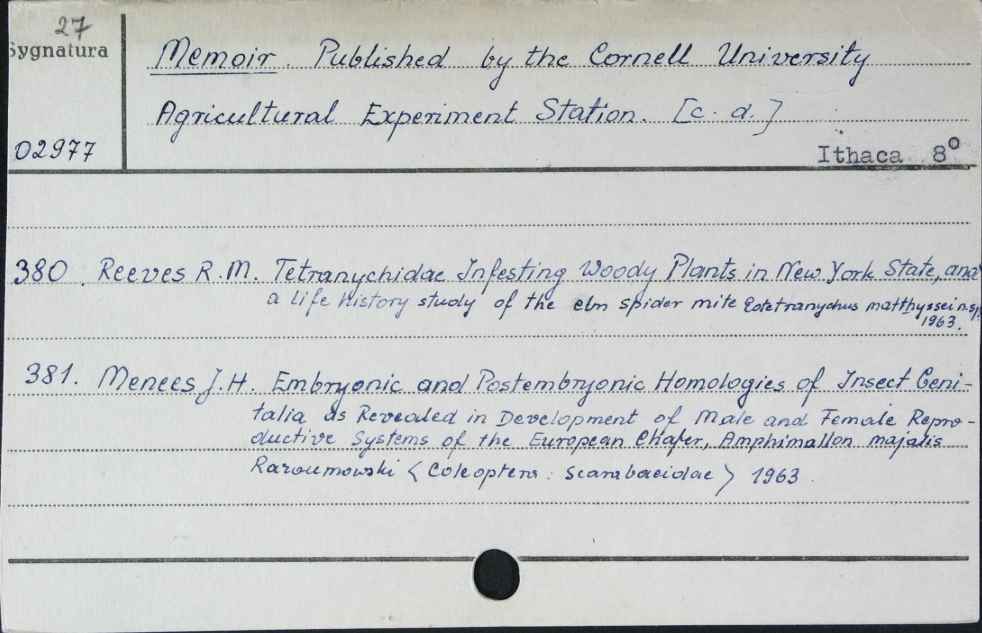 27
Sygnatura
Memoir. Published by the Cornell University
Agricultural Experiment Station. [c. d.]
02977
Ithaca 8°
380. Reeves R.M. Tetranychidae Infesting Woody Plants in New York State, and
a life history study of the elm spider mite Eotetranychus matthyssei n.sp.
1963.
381. Menees J.H. Embryonic and Postembryonic Homologies of Insect Geni-
talia as Revealed in Development of Male and Female Repro-
ductive Systems of the European Chafer, Amphimallon majalis
Razoumowski < Coleoptera : Scarabaeidae > 1963.